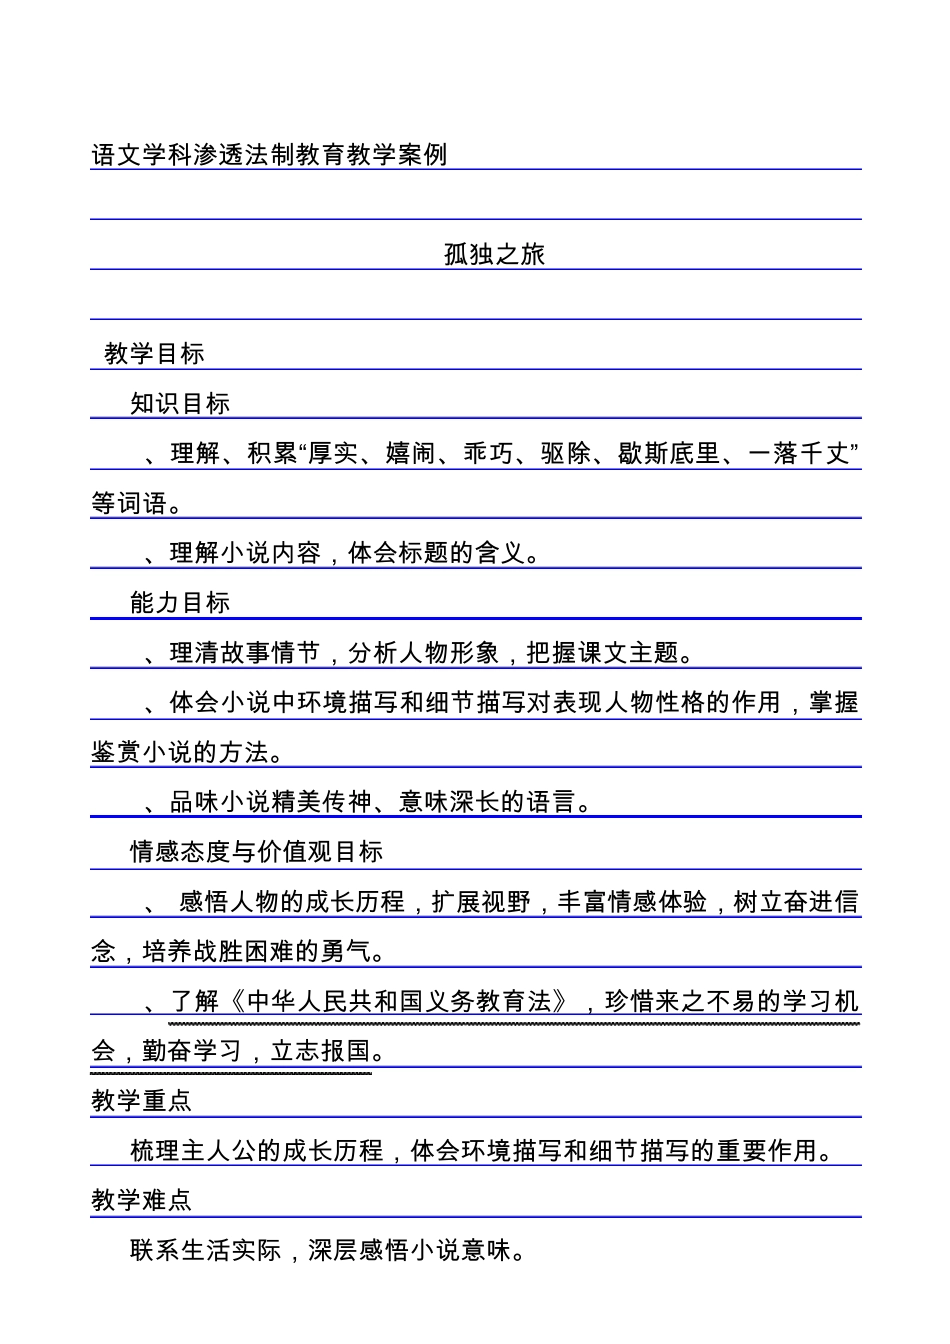 语文学科渗透法制教育教学案例
孤独之旅
教学目标
知识目标
、理解、积累“厚实、嬉闹、乖巧、驱除、歇斯底里、一落千丈”
等词语。
、理解小说内容，体会标题的含义。
能力目标
、理清故事情节，分析人物形象，把握课文主题。
、体会小说中环境描写和细节描写对表现人物性格的作用，掌握
鉴赏小说的方法。
、品味小说精美传神、意味深长的语言。
情感态度与价值观目标
、 感悟人物的成长历程，扩展视野，丰富情感体验，树立奋进信
念，培养战胜困难的勇气。
、了解《中华人民共和国义务教育法》，珍惜来之不易的学习机
会，勤奋学习，立志报国。
教学重点
梳理主人公的成长历程，体会环境描写和细节描写的重要作用。
教学难点
联系生活实际，深层感悟小说意味。